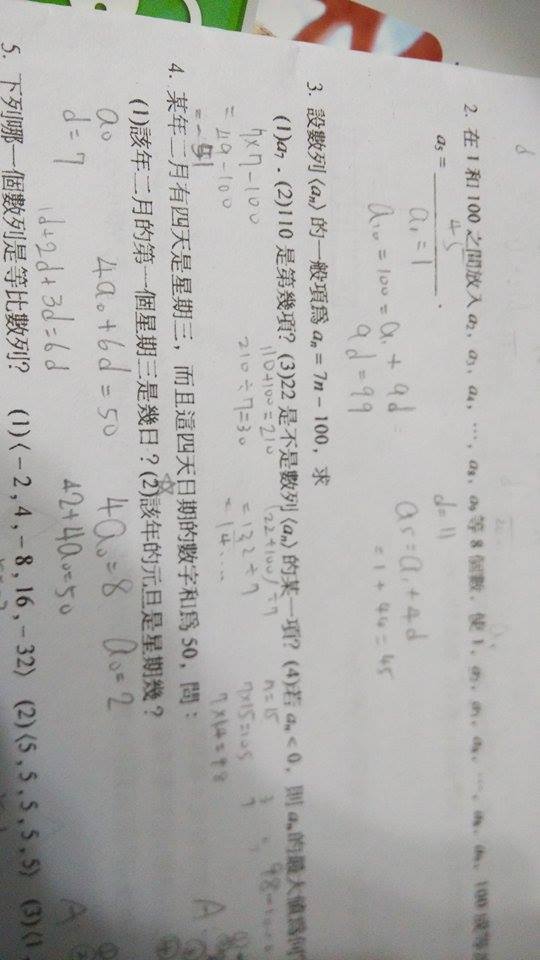 2. 在 1 和 100 之間放入 a₂, a₃, a₄, …, a₈, a₉ 等 8 個數, 使 1, a₂, a₃, a₄, …, a₈, a₉, 100 成等
a₅ = ________.
45
a₁=1
d=11
a₁₀=100=a₁+9d
9d=99
a₅=a₁+4d
=1+44=45
3. 設數列⟨aₙ⟩的一般項為 aₙ = 7n − 100, 求
(1)a₇. (2)110 是第幾項? (3)22 是不是數列⟨aₙ⟩的某一項? (4)若 aₙ < 0, 則 aₙ 的最大值為何
7×7−100
=49−100
=−51
110+100=210
210÷7=30
(22+100)÷7
=132÷7
=14...
n=15
7×15=105
7×14=98
4. 某年二月有四天是星期三, 而且這四天日期的數字和為 50, 問:
(1)該年二月的第一個星期三是幾日? (2)該年的元旦是星期幾?
a₀
d=7
4a₀+6d=50
4a₀=8
a₀=2
1d+2d+3d=6d
42+4a₀=50
A
5. 下列哪一個數列是等比數列? (1)⟨−2, 4, −8, 16, −32⟩ (2)⟨5, 5, 5, 5, 5⟩ (3)⟨1,
A